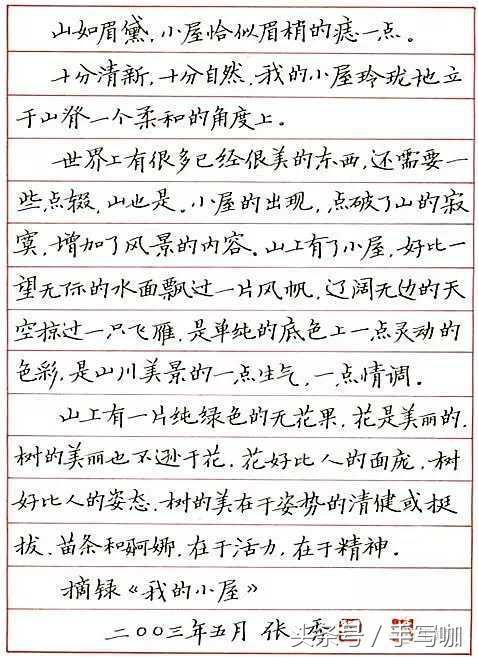 山如眉黛,小屋恰似眉梢的痣一点。
十分清新,十分自然.我的小屋玲珑地立
于山脊一个柔和的角度上。
世界上有很多已经很美的东西,还需要一
些点缀,山也是。小屋的出现,点破了山的寂
寞,增加了风景的内容。山上有了小屋,好比一
望无际的水面飘过一片风帆,辽阔无边的天
空掠过一只飞雁,是单纯的底色上一点灵动的
色彩,是山川美景的一点生气,一点情调。
山上有一片纯绿色的无花果,花是美丽的,
树的美丽也不逊于花.花好比人的面庞,树
好比人的姿态.树的美在于姿势的清健或挺
拔、苗条和婀娜,在于活力,在于精神。
摘録《我的小屋》
二〇〇三年五月 张
头条号 / 手写咖